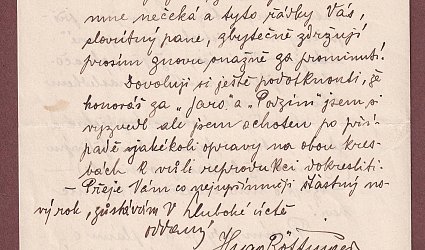 mne nečeká a tyto řádky Vás,
slovutný pane, zbytečně zdržují
prosím znovu snažně za prominutí.
Dovoluji si ještě podotknouti, že
honorář za „Jaro“ a „Podzim“ jsem si
vyzvedl ale jsem ochoten po pří-
padě jakékoli opravy na obou kres-
bách k vůli reprodukci dokresliti.
– Přeje Vám co nejupřímněji šťastný no-
vý rok, zůstávám v hluboké úctě
oddaný
Hugo Böttinger